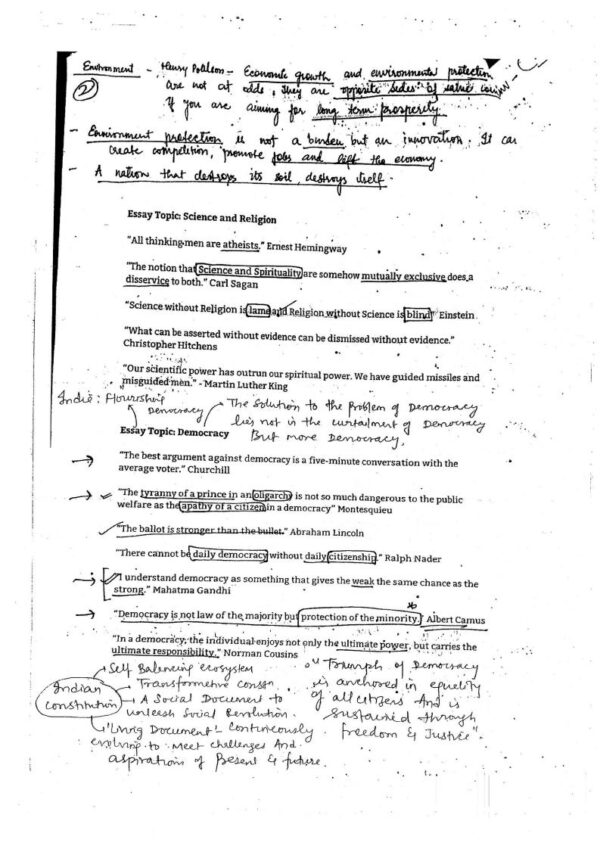 Environment - Henry Paulson - Economic growth and environmental protection
are not at odds. They are opposite sides of same coin
If you are aiming for long term prosperity.
2
- Environment protection is not a burden but an innovation. It can
create competition, promote jobs and lift the economy.
- A nation that destroys its soil, destroys itself.
Essay Topic: Science and Religion
"All thinking men are atheists." Ernest Hemingway
"The notion that Science and Spirituality are somehow mutually exclusive does a
disservice to both." Carl Sagan
"Science without Religion is lame and Religion without Science is blind" Einstein
"What can be asserted without evidence can be dismissed without evidence."
Christopher Hitchens
"Our scientific power has outrun our spiritual power. We have guided missiles and
misguided men." - Martin Luther King
India: Flourishing Democracy
The Solution to the Problem of Democracy
lies not in the curtailment of Democracy
But more Democracy.
Essay Topic: Democracy
"The best argument against democracy is a five-minute conversation with the
average voter." Churchill
"The tyranny of a prince in an oligarchy is not so much dangerous to the public
welfare as the apathy of a citizen in a democracy" Montesquieu
"The ballot is stronger than the bullet." Abraham Lincoln
"There cannot be daily democracy without daily citizenship." Ralph Nader
"I understand democracy as something that gives the weak the same chance as the
strong." Mahatma Gandhi
"Democracy is not law of the majority but protection of the minority." Albert Camus
"In a democracy, the individual enjoys not only the ultimate power, but carries the
ultimate responsibility." Norman Cousins
Indian
Constitution
Self Balancing ecosystem
Transformative Consn
A Social Document to
unleash Social Revolution.
'Living Document' - Continuously
evolving to meet challenges And
aspirations of Present & future.
"Triumph of Democracy
is anchored in equality
of all citizens And is
sustained through
freedom & Justice".